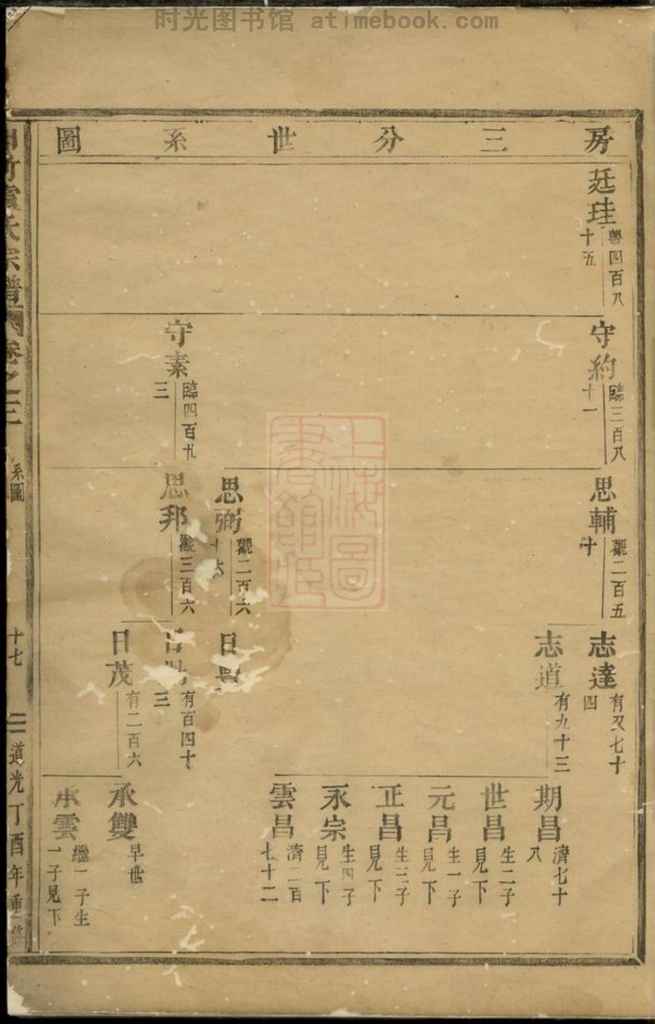 时光图书馆 atimebook.com
房三分世系圖
廷珪
粵四百八
十五
守約
臨三百八
十一
守素
臨四百九
三
思輔
觀二百五
十
思弼
觀二百六
十六
思邦
觀三百六
志達
有又七十
四
志道
有九十三
日
有百四十
三
日茂
有二百六
期昌
濟七十
八
世昌
生二子
見下
元昌
生一子
見下
正昌
生三子
見下
永宗
生四子
見下
雲昌
濟二百
七十二
承雙
早世
承雲
繼一子生
一子見下
氏宗譜
卷之三
系圖
十七
道光丁酉年重修
上海圖書館藏